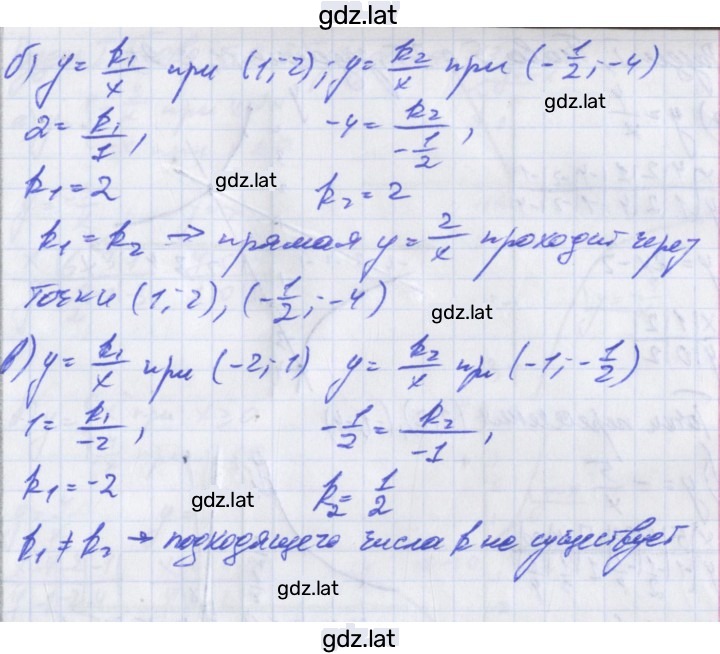 gdz.lat
б) y = k₁/x при (1; 2); y = k₂/x при (-1/2; -4)
gdz.lat
2 = k₁/1, -4 = k₂/(-1/2),
gdz.lat
k₁ = 2 k₂ = 2
k₁ = k₂ → прямая y = 2/x проходит через
точки (1; 2), (-1/2; -4)
gdz.lat
в) y = k₁/x при (-2; 1) y = k₂/x при (-1; -1/2)
1 = k₁/-2, -1/2 = k₂/-1,
k₁ = -2 k₂ = 1/2
gdz.lat
k₁ ≠ k₂ → подходящего числа k не существует
gdz.lat
gdz.lat